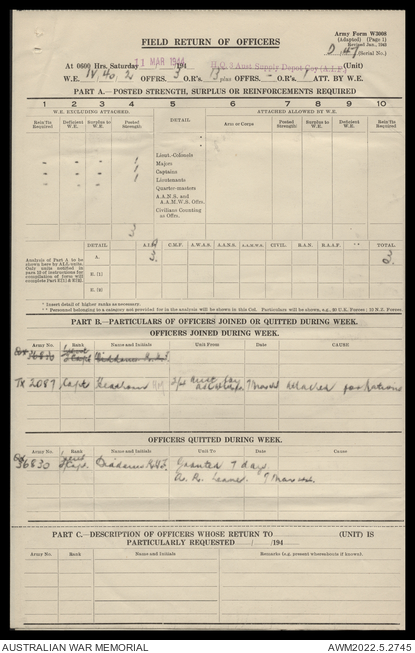 Army Form W3008
(Adapted) (Page 1)
Revised Jan., 1943
FIELD RETURN OF OFFICERS
D 47 (Serial No.)
At 0600 Hrs. Saturday 11 MAR 1944 194 H.Q. 2 Aust Supply Depot Coy (A.I.F.) (Unit)
W.E. OFFRS. 3 O.R's 13 plus OFFRS. - O.R's 1 ATT. BY W.E.
PART A.—POSTED STRENGTH, SURPLUS OR REINFORCEMENTS REQUIRED
1 2 3 4 5 6 7 8 9 10
W.E. EXCLUDING ATTACHED. ATTACHED ALLOWED BY W.E.
Rein/Tts Required Deficient W.E. Surplus to W.E. Posted Strength DETAIL Arm or Corps Posted Strength Surplus to W.E. Deficient W.E. Rein/Tts Required
Lieut.-Colonels
- - - 1 Majors
- - - 1 Captains
- - 1 Lieutenants
Quarter-masters
A.A.N.S. and
A.A.M.W.S. Offrs.
Civilians Counting
as Offrs.
3
DETAIL A.I.F. C.M.F. A.W.A.S. A.A.N.S. A.A.M.W.S. CIVIL R.A.N. R.A.A.F. ** TOTAL
Analysis of Part A to be
shown here by ALL units.
Only units notified in
para 10 of instructions for
compilation of form will
complete Part B(1) & B(2).
A. 3. 3.
B. (1)
B. (2)
* Insert detail of higher ranks as necessary.
** Personnel belonging to a category not provided for in the analysis will be shown in this Col. Particulars will be shown, e.g., 20 U.K. Forces; 10 N.Z. Forces.
PART B.—PARTICULARS OF OFFICERS JOINED OR QUITTED DURING WEEK.
OFFICERS JOINED DURING WEEK.
Army No. Rank Name and Initials Unit From Date CAUSE
TX 2087 Capt 7 March attached for Rations
OFFICERS QUITTED DURING WEEK.
Army No. Rank Name and Initials Unit To Date Cause
36830 Granted 7 days
Leave
PART C.—DESCRIPTION OF OFFICERS WHOSE RETURN TO (UNIT) IS
PARTICULARLY REQUESTED / /194
Army No. Rank Name and Initials Remarks (e.g. present whereabouts if known).
AUSTRALIAN WAR MEMORIAL AWM2022.5.2745